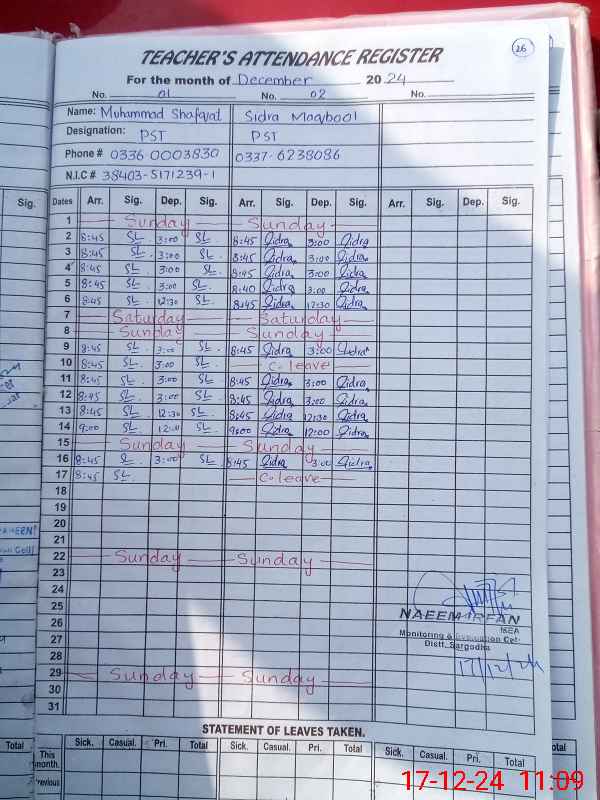 26
TEACHER'S ATTENDANCE REGISTER
For the month of December 2024
No. 01 No. 02 No.
Name: Muhammad Shafqat Sidra Maqbool
Designation: PST PST
Phone # 0336 0003830 0337-6238086
N.I.C # 38403-5171239-1
Sig. Dates Arr. Sig. Dep. Sig. Arr. Sig. Dep. Sig. Arr. Sig. Dep. Sig.
1 Sunday Sunday
2 8:45 SL 3:00 SL 8:45 Sidra 3:00 Sidra
3 8:45 SL 3:00 SL 8:45 Sidra 3:00 Sidra
4 8:45 SL 3:00 SL 8:45 Sidra 3:00 Sidra
5 8:45 SL 3:00 SL 8:40 Sidra 3:00 Sidra
6 8:45 SL 12:30 SL 8:45 Sidra 12:30 Sidra
7 Saturday Saturday
8 Sunday Sunday
9 8:45 SL 3:00 SL 8:45 Sidra 3:00 Sidra
10 8:45 SL 3:00 SL C-leave
11 8:45 SL 3:00 SL 8:45 Sidra 3:00 Sidra
12 8:45 SL 3:00 SL 8:45 Sidra 3:00 Sidra
13 8:45 SL 12:30 SL 8:45 Sidra 12:30 Sidra
14 9:00 SL 12:00 SL 9:00 Sidra 12:00 Sidra
15 Sunday Sunday
16 8:45 SL 3:00 SL 8:45 Sidra 3:00 Sidra
17 8:45 SL. C-leave
18
19
20
21
22 Sunday Sunday
23
24
25
26
27
28
29 Sunday Sunday
30
31
NAEEM IRFAN
MEA
Monitoring & Evaluation Cell
Distt. Sargodha
17/12/24
STATEMENT OF LEAVES TAKEN.
Total Sick. Casual. Pri. Total Sick. Casual. Pri. Total Sick. Casual. Pri. Total Total
This month.
Previous
17-12-24 11:09